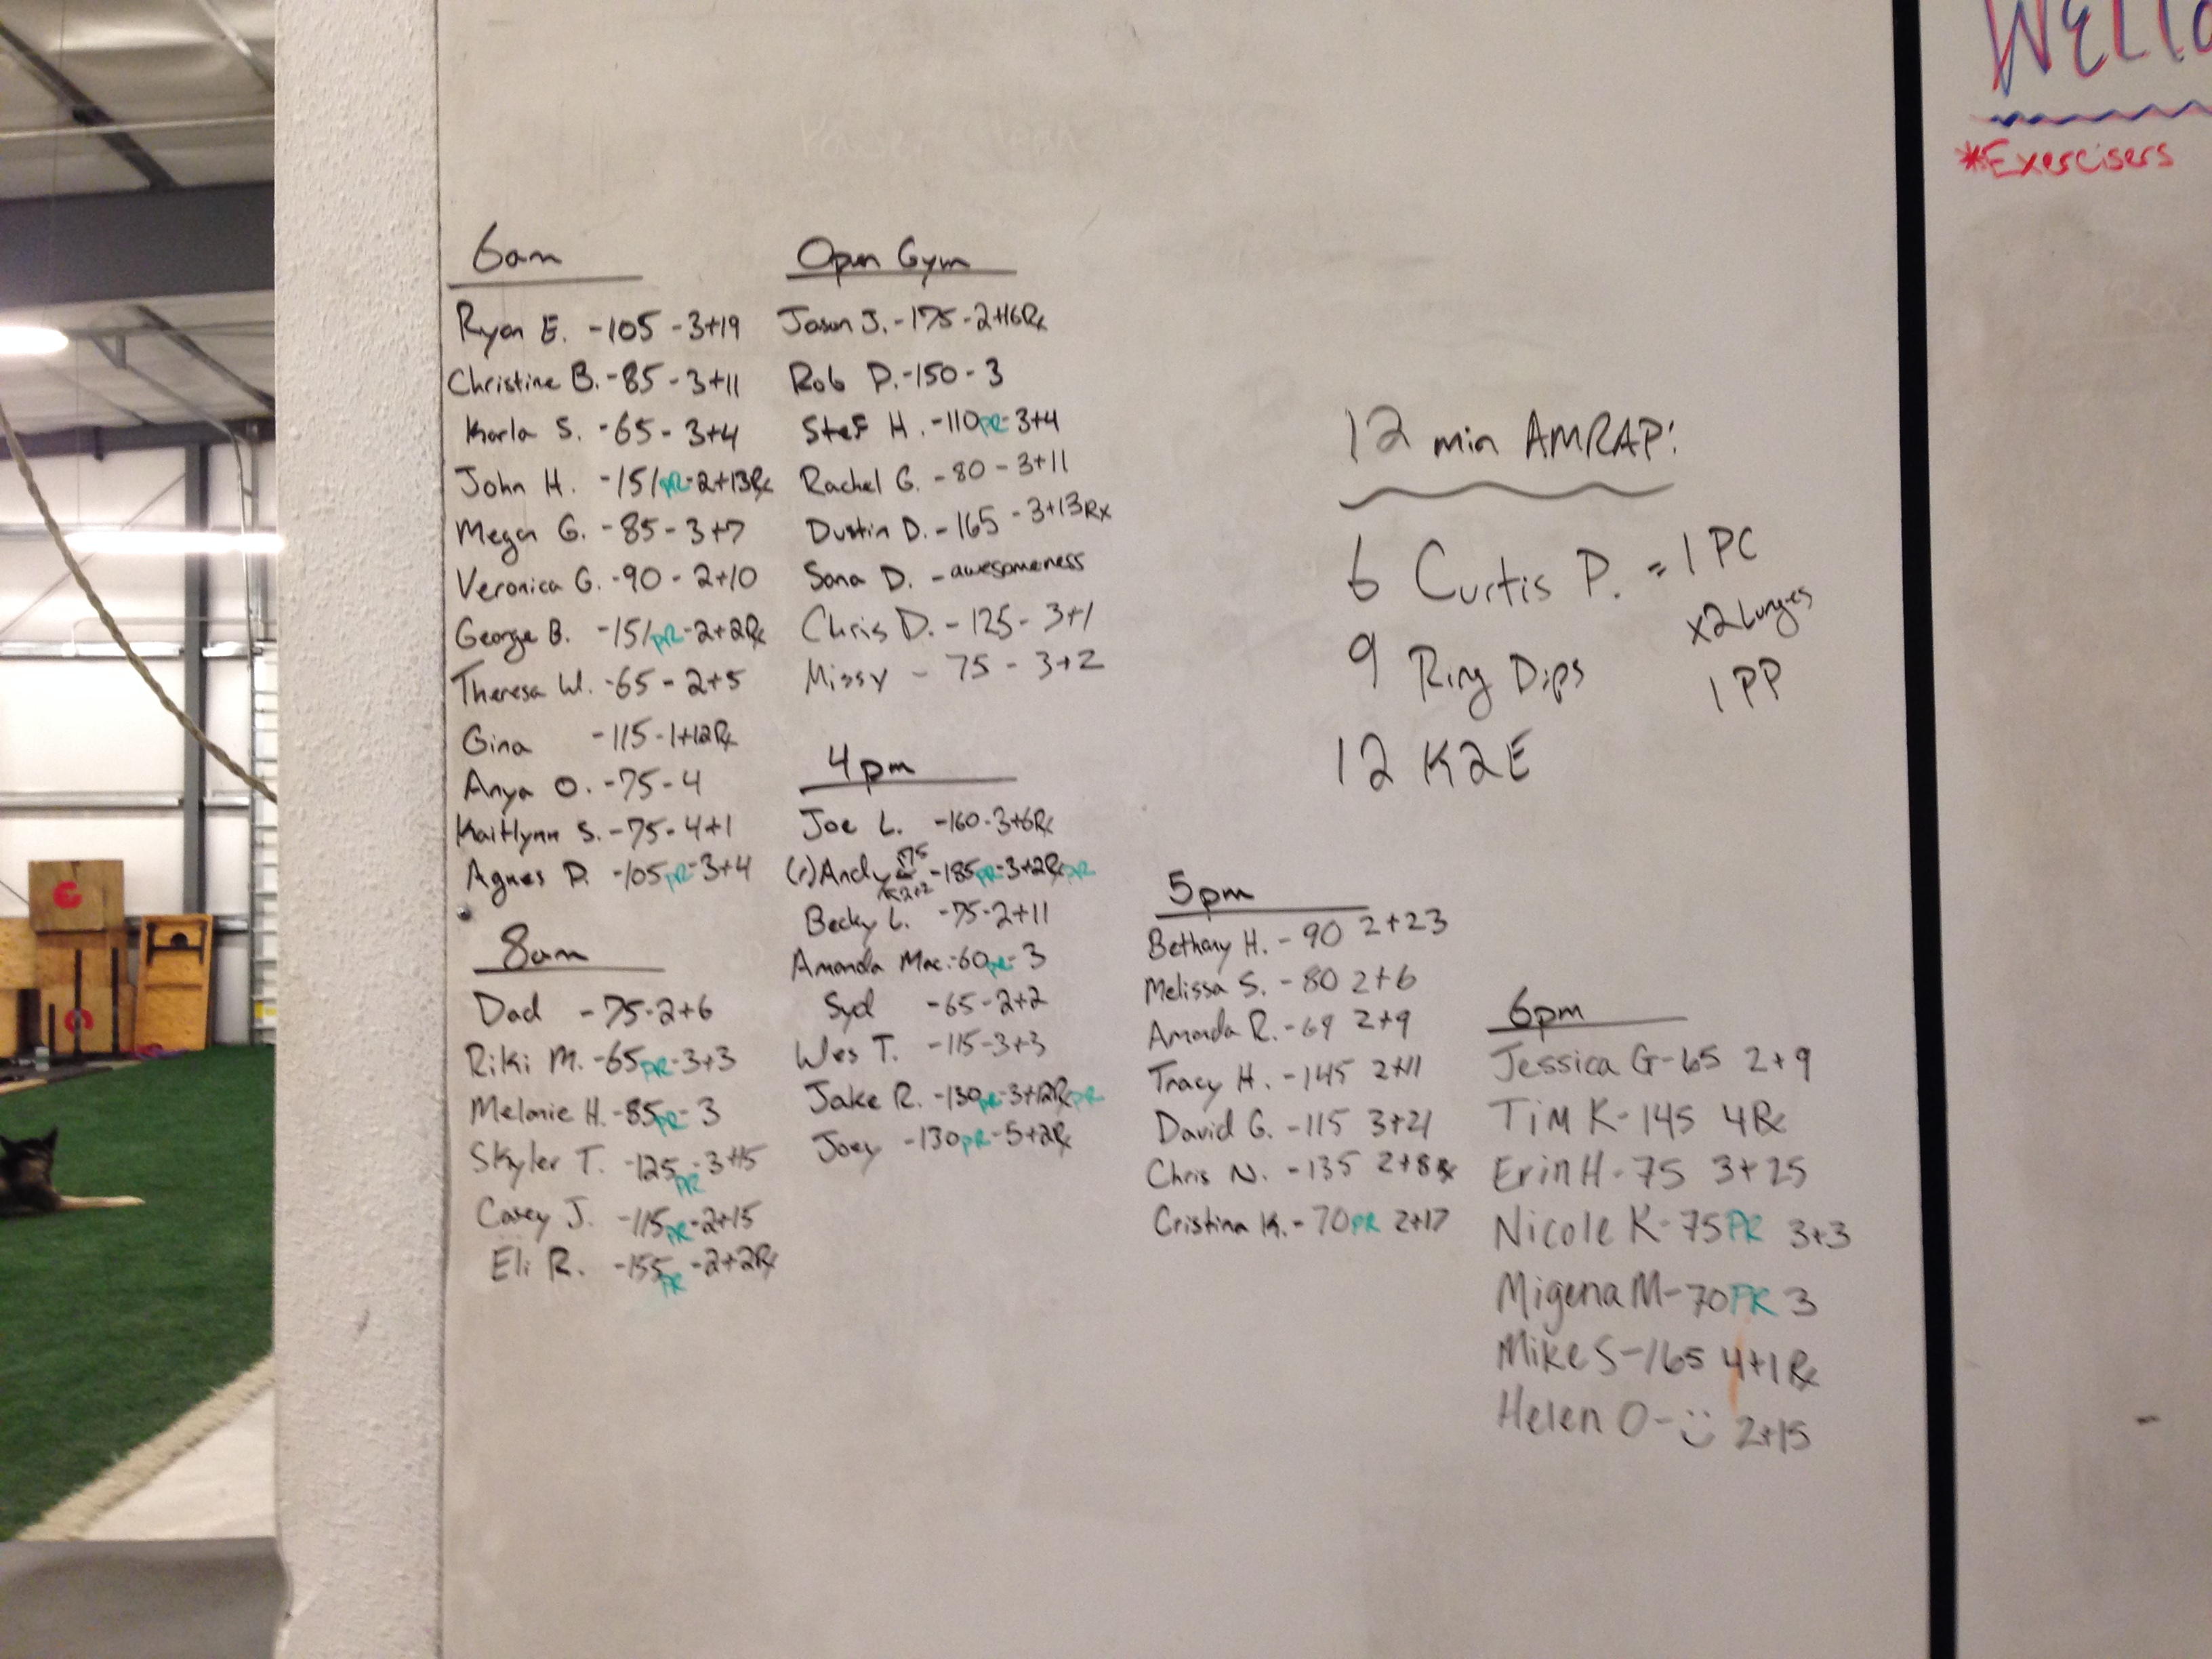 6am
Ryan E. -105 - 3+19
Christine B. -85 - 3+11
Karla S. -65 - 3+4
John H. -151 PR -2+13Rx
Megan G. -85 - 3+7
Veronica G. -90 - 2+10
George B. -151 PR -2+2Rx
Theresa W. -65 - 2+5
Gina -115-1+12Rx
Anya O. -75-4
Kaitlynn S. -75-4+1
Agnes P. -105 PR -3+4
8am
Dad -75-2+6
Riki M. -65 PR -3+3
Melanie H. -85 PR - 3
Skyler T. -125 PR -3+15
Casey J. -115 PR -2+15
Eli R. -155 PR -2+2Rx
Open Gym
Jason J. -175-2+16Rx
Rob P. -150 - 3
Stef H. -110 PR -3+4
Rachel G. - 80 - 3+11
Dustin D. - 165 - 3+13Rx
Sana D. - awesomeness
Chris D. - 125 - 3+1
Missy - 75 - 3+2
4pm
Joe L. -160-3+6Rx
(r) Andy -185 PR -3+2Rx PR
Becky L. -75-2+11
Amanda Mac. -60 PR - 3
Syd -65-2+2
Wes T. -115-3+3
Jake R. -130 PR -3+12Rx PR
Joey -130 PR -5+2Rx
5pm
Bethany H. - 90 2+23
Melissa S. - 80 2+6
Amanda R. - 69 2+9
Tracy H. -145 2+11
David G. -115 3+21
Chris N. -135 2+8Rx
Cristina K. - 70 PR 2+17
6pm
Jessica G-65 2+9
Tim K-145 4Rx
Erin H-75 3+25
Nicole K-75 PR 3+3
Migena M-70 PR 3
Mike S-165 4+1Rx
Helen O- 2+15
12 min AMRAP:
6 Curtis P. = 1 PC
x2 Lunges
1 PP
9 Ring Dips
12 K2E
*Exercisers